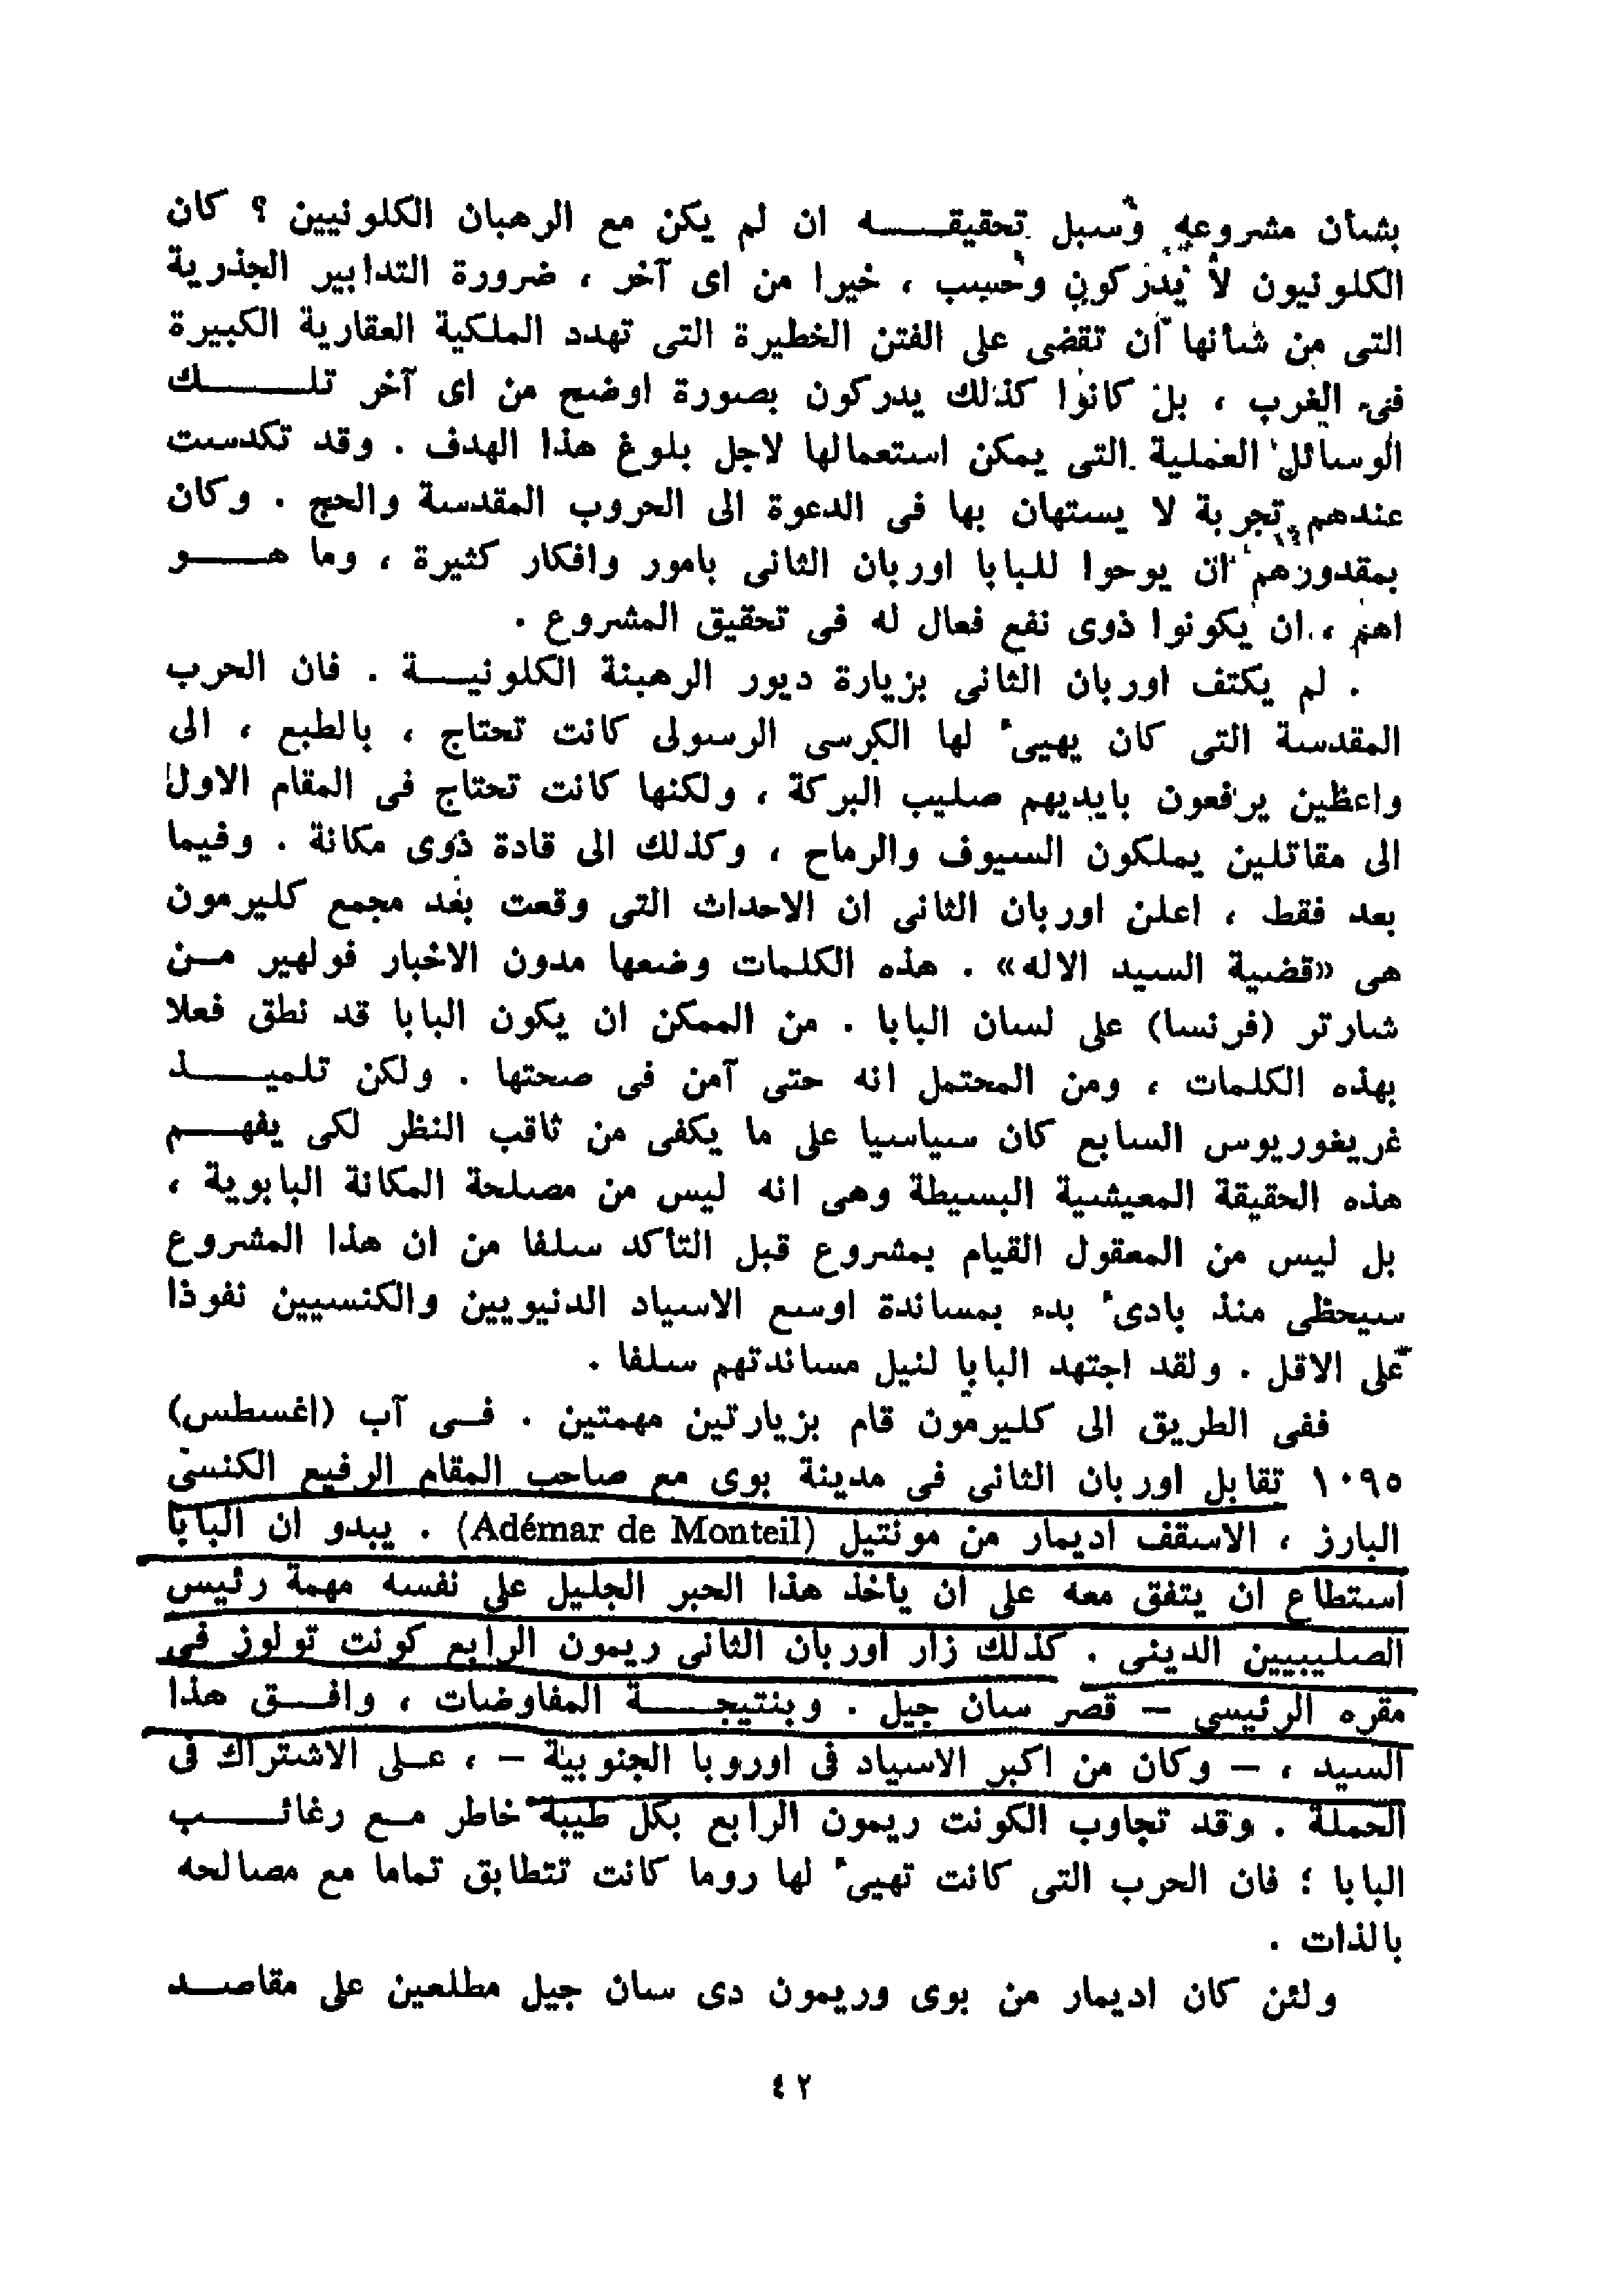 بشأن مشروعه وسبل تحقيقه ان لم يكن مع الرهبان الكلونيين ؟ كان
الكلونيون لا يدركون وحسب ، خيرا من اى آخر ، ضرورة التدابير الجذرية
التى من شأنها ان تقضى على الفتن الخطيرة التى تهدد الملكية العقارية الكبيرة
فى الغرب ، بل كانوا كذلك يدركون بصورة اوضح من اى آخر تلك
الوسائل العملية التى يمكن استعمالها لاجل بلوغ هذا الهدف . وقد تكدست
عندهم تجربة لا يستهان بها فى الدعوة الى الحروب المقدسة والحج . وكان
بمقدورهم ان يوحوا للبابا اوربان الثانى بامور وافكار كثيرة ، وما هو
اهم ، ان يكونوا ذوى نفع فعال له فى تحقيق المشروع .
. لم يكتف اوربان الثانى بزيارة ديور الرهبنة الكلونية . فان الحرب
المقدسة التى كان يهيىء لها الكرسى الرسولى كانت تحتاج ، بالطبع ، الى
واعظين يرفعون بايديهم صليب البركة ، ولكنها كانت تحتاج فى المقام الاول
الى مقاتلين يملكون السيوف والرماح ، وكذلك الى قادة ذوى مكانة . وفيما
بعد فقط ، اعلن اوربان الثانى ان الاحداث التى وقعت بعد مجمع كليرمون
هى «قضية السيد الاله» . هذه الكلمات وضعها مدون الاخبار فولهير من
شارتر (فرنسا) على لسان البابا . من الممكن ان يكون البابا قد نطق فعلا
بهذه الكلمات ، ومن المحتمل انه حتى آمن فى صحتها . ولكن تلميذ
غريغوريوس السابع كان سياسيا على ما يكفى من ثاقب النظر لكى يفهم
هذه الحقيقة المعيشية البسيطة وهى انه ليس من مصلحة المكانة البابوية ،
بل ليس من المعقول القيام بمشروع قبل التأكد سلفا من ان هذا المشروع
سيحظى منذ بادىء بدء بمساندة اوسع الاسياد الدنيويين والكنسيين نفوذا
على الاقل . ولقد اجتهد البابا لنيل مساندتهم سلفا .
ففى الطريق الى كليرمون قام بزيارتين مهمتين . فى آب (اغسطس)
١٠٩٥ تقابل اوربان الثانى فى مدينة بوى مع صاحب المقام الرفيع الكنسى
البارز ، الاسقف اديمار من مونتيل (Adémar de Monteil) . يبدو ان البابا
استطاع ان يتفق معه على ان يأخذ هذا الحبر الجليل على نفسه مهمة رئيس
الصليبيين الدينى . كذلك زار اوربان الثانى ريمون الرابع كونت تولوز فى
مقره الرئيسى – قصر سان جيل . وبنتيجة المفاوضات ، وافق هذا
السيد ، – وكان من اكبر الاسياد فى اوروبا الجنوبية – ، على الاشتراك فى
الحملة . وقد تجاوب الكونت ريمون الرابع بكل طيبة خاطر مع رغائب
البابا ؛ فان الحرب التى كانت تهيىء لها روما كانت تتطابق تماما مع مصالحه
بالذات .
ولئن كان اديمار من بوى وريمون دى سان جيل مطلعين على مقاصد
٤٢